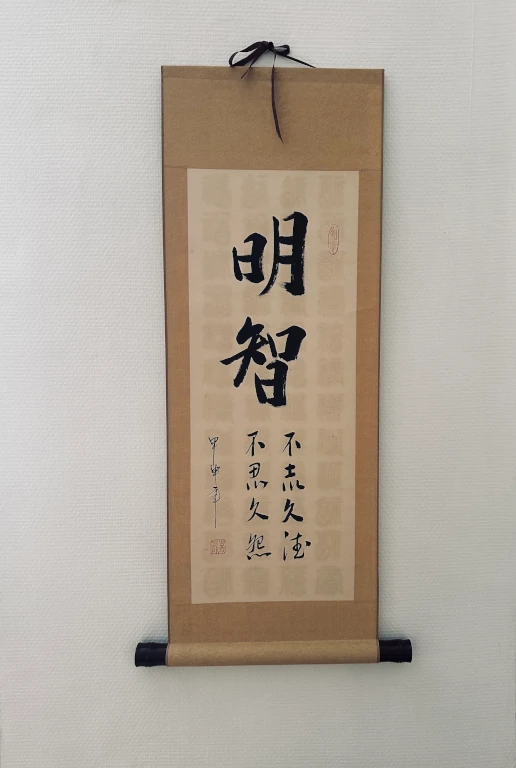 明智
不忘久德
不思久怨
甲申年